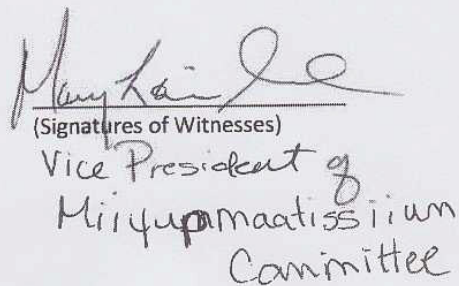 Mary
(Signatures of Witnesses)
Vice President of
Miiyupmaatissiiun
Committee